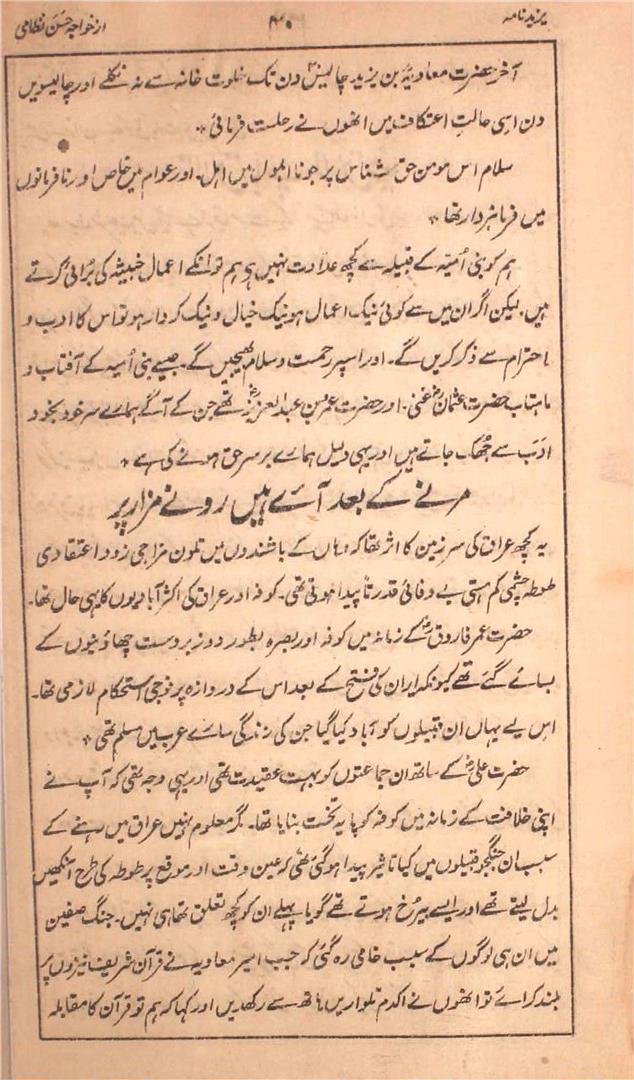 یزید نامہ
۴۰
از خواجہ حسن نظامی
آخر حضرت معاویہؒ بن یزید چالیس دن تک خلوت خانہ سے نہ نکلے اور چالیسویں
دن اسی حالتِ اعتکاف میں انھوں نے رحلت فرمائی ٭
سلام اس مومن حق شناس پر جو نا اہلوں میں اہل۔ اور عوام میں خاص اور نافرمانوں
میں فرمانبردار تھا ٭
ہم کو بنی اُمیّہ کے قبیلہ سے کچھ عداوت نہیں ہی ہم تو انکے اعمال خبیثہ کی بُرائی کرتے
ہیں۔ لیکن اگر ان میں سے کوئی نیک اعمال ہو نیک خیال و نیک کردار ہو تو اس کا ادب و
احترام سے ذکر کریں گے۔ اور اسپر رحمت و سلام بھیجیں گے۔ جیسے بنی اُمیہ کے آفتاب و
ماہتاب حضرت عثمان غنیؓ۔ اور حضرت عمر بن عبد العزیزؒ تھے جن کے آگے ہمارے سر خود بخود
ادَب سے جُھک جاتے ہیں اور یہی دلیل ہمارے بر سر حق ہونے کی ہے ٭
مرنے کے بعد آئے ہیں رونے مزار پر
یہ کچھ عراق کی سرزمین کا اثر تھا کہ وہاں کے باشندوں میں تلون مزاجی زود اعتقادی
طوطہ چشمی کم ہمتی بے وفائی قدرتاً پیدا ہوتی تھی۔ کوفہ اور عراق کی اکثر آبادیوں کا یہی حال تھا۔
حضرت عمر فاروقؓ کے زمانہ میں کوفہ اور بصرہ بطور دو زبردست چھاؤنیوں کے
بسائے گئے تھے کیونکہ ایران کی فتح کے بعد اس کے دروازہ پر فوجی استحکام لازمی تھا۔
اس لیے یہاں ان قبیلوں کو آباد کیا گیا جن کی زندگی سارے عرب میں مسلم تھی ٭
حضرت علیؓ کے ساتھ ان جماعتوں کو بہت عقیدت تھی اور یہی وجہ تھی کہ آپ نے
اپنی خلافت کے زمانہ میں کوفہ کو پایہ تخت بنایا تھا۔ مگر معلوم نہیں عراق میں رہنے کے
سبب ان جنگجو قبیلوں میں کیا تاثیر پیدا ہو گئی تھی کہ عین وقت اور موقع پر طوطہ کی طرح آنکھیں
بدل لیتے تھے اور ایسے بیرُخ ہوتے تھے گویا پہلے ان کو کچھ تعلق تھا ہی نہیں۔ جنگ صفین
میں ان ہی لوگوں کے سبب خامی رہ گئی کہ جب امیر معاویہ نے قرآن شریف نیزوں پر
بلند کرائے تو انھوں نے اکدم تلواریں ہاتھ سے رکھدیں اور کہا کہ ہم تو قرآن کا مقابلہ